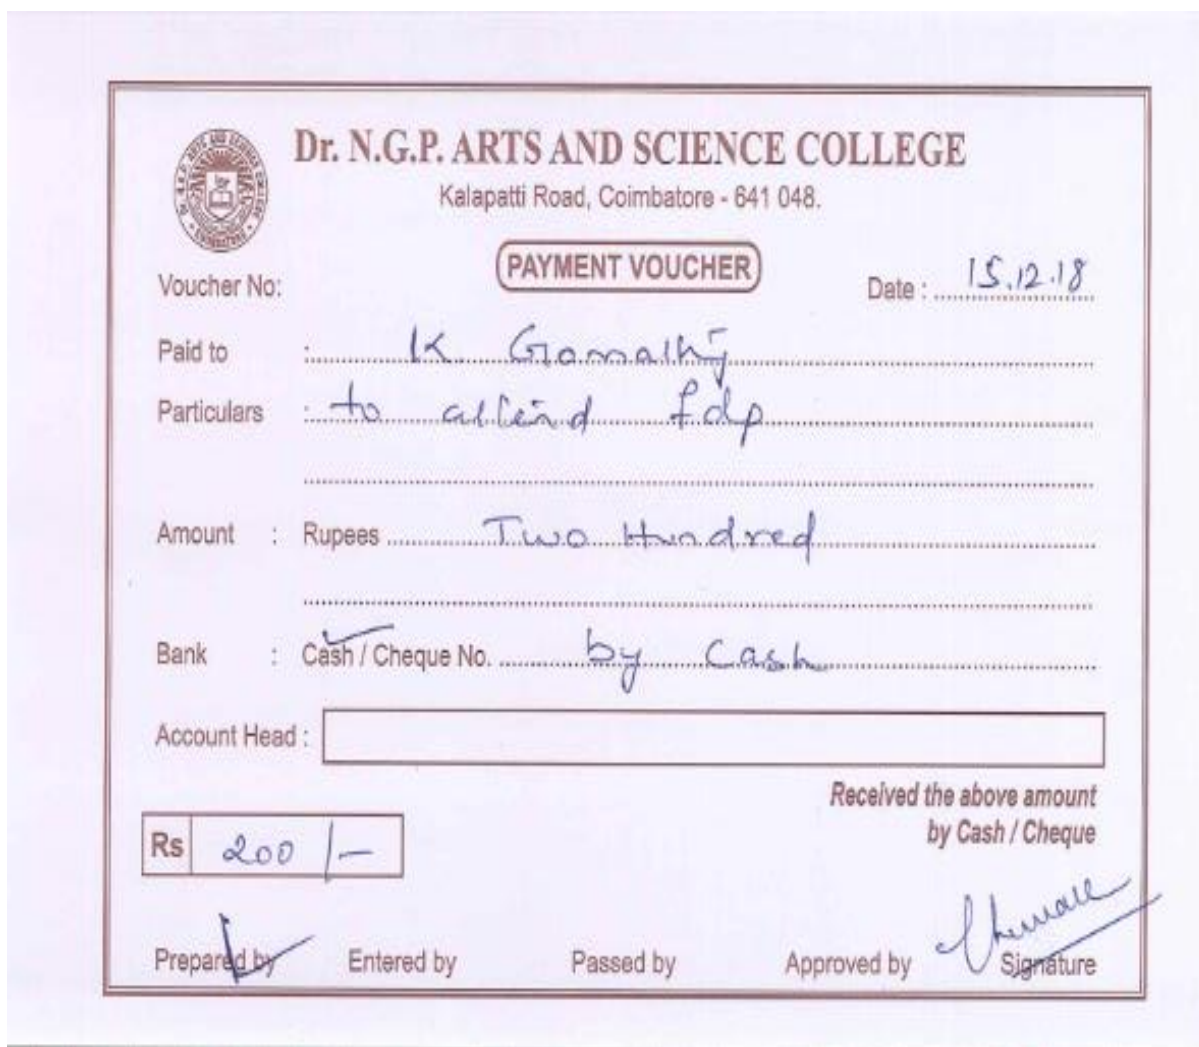 Dr. N.G.P. ARTS AND SCIENCE COLLEGE
Kalapatti Road, Coimbatore - 641 048.
PAYMENT VOUCHER
Voucher No:
Date : 15.12.18
Paid to : K Gomathy
Particulars : to attend fdp
Amount : Rupees Two Hundred
Bank : Cash / Cheque No. by Cash
Account Head :
Received the above amount
by Cash / Cheque
Rs 200 /-
Prepared by Entered by Passed by Approved by Signature